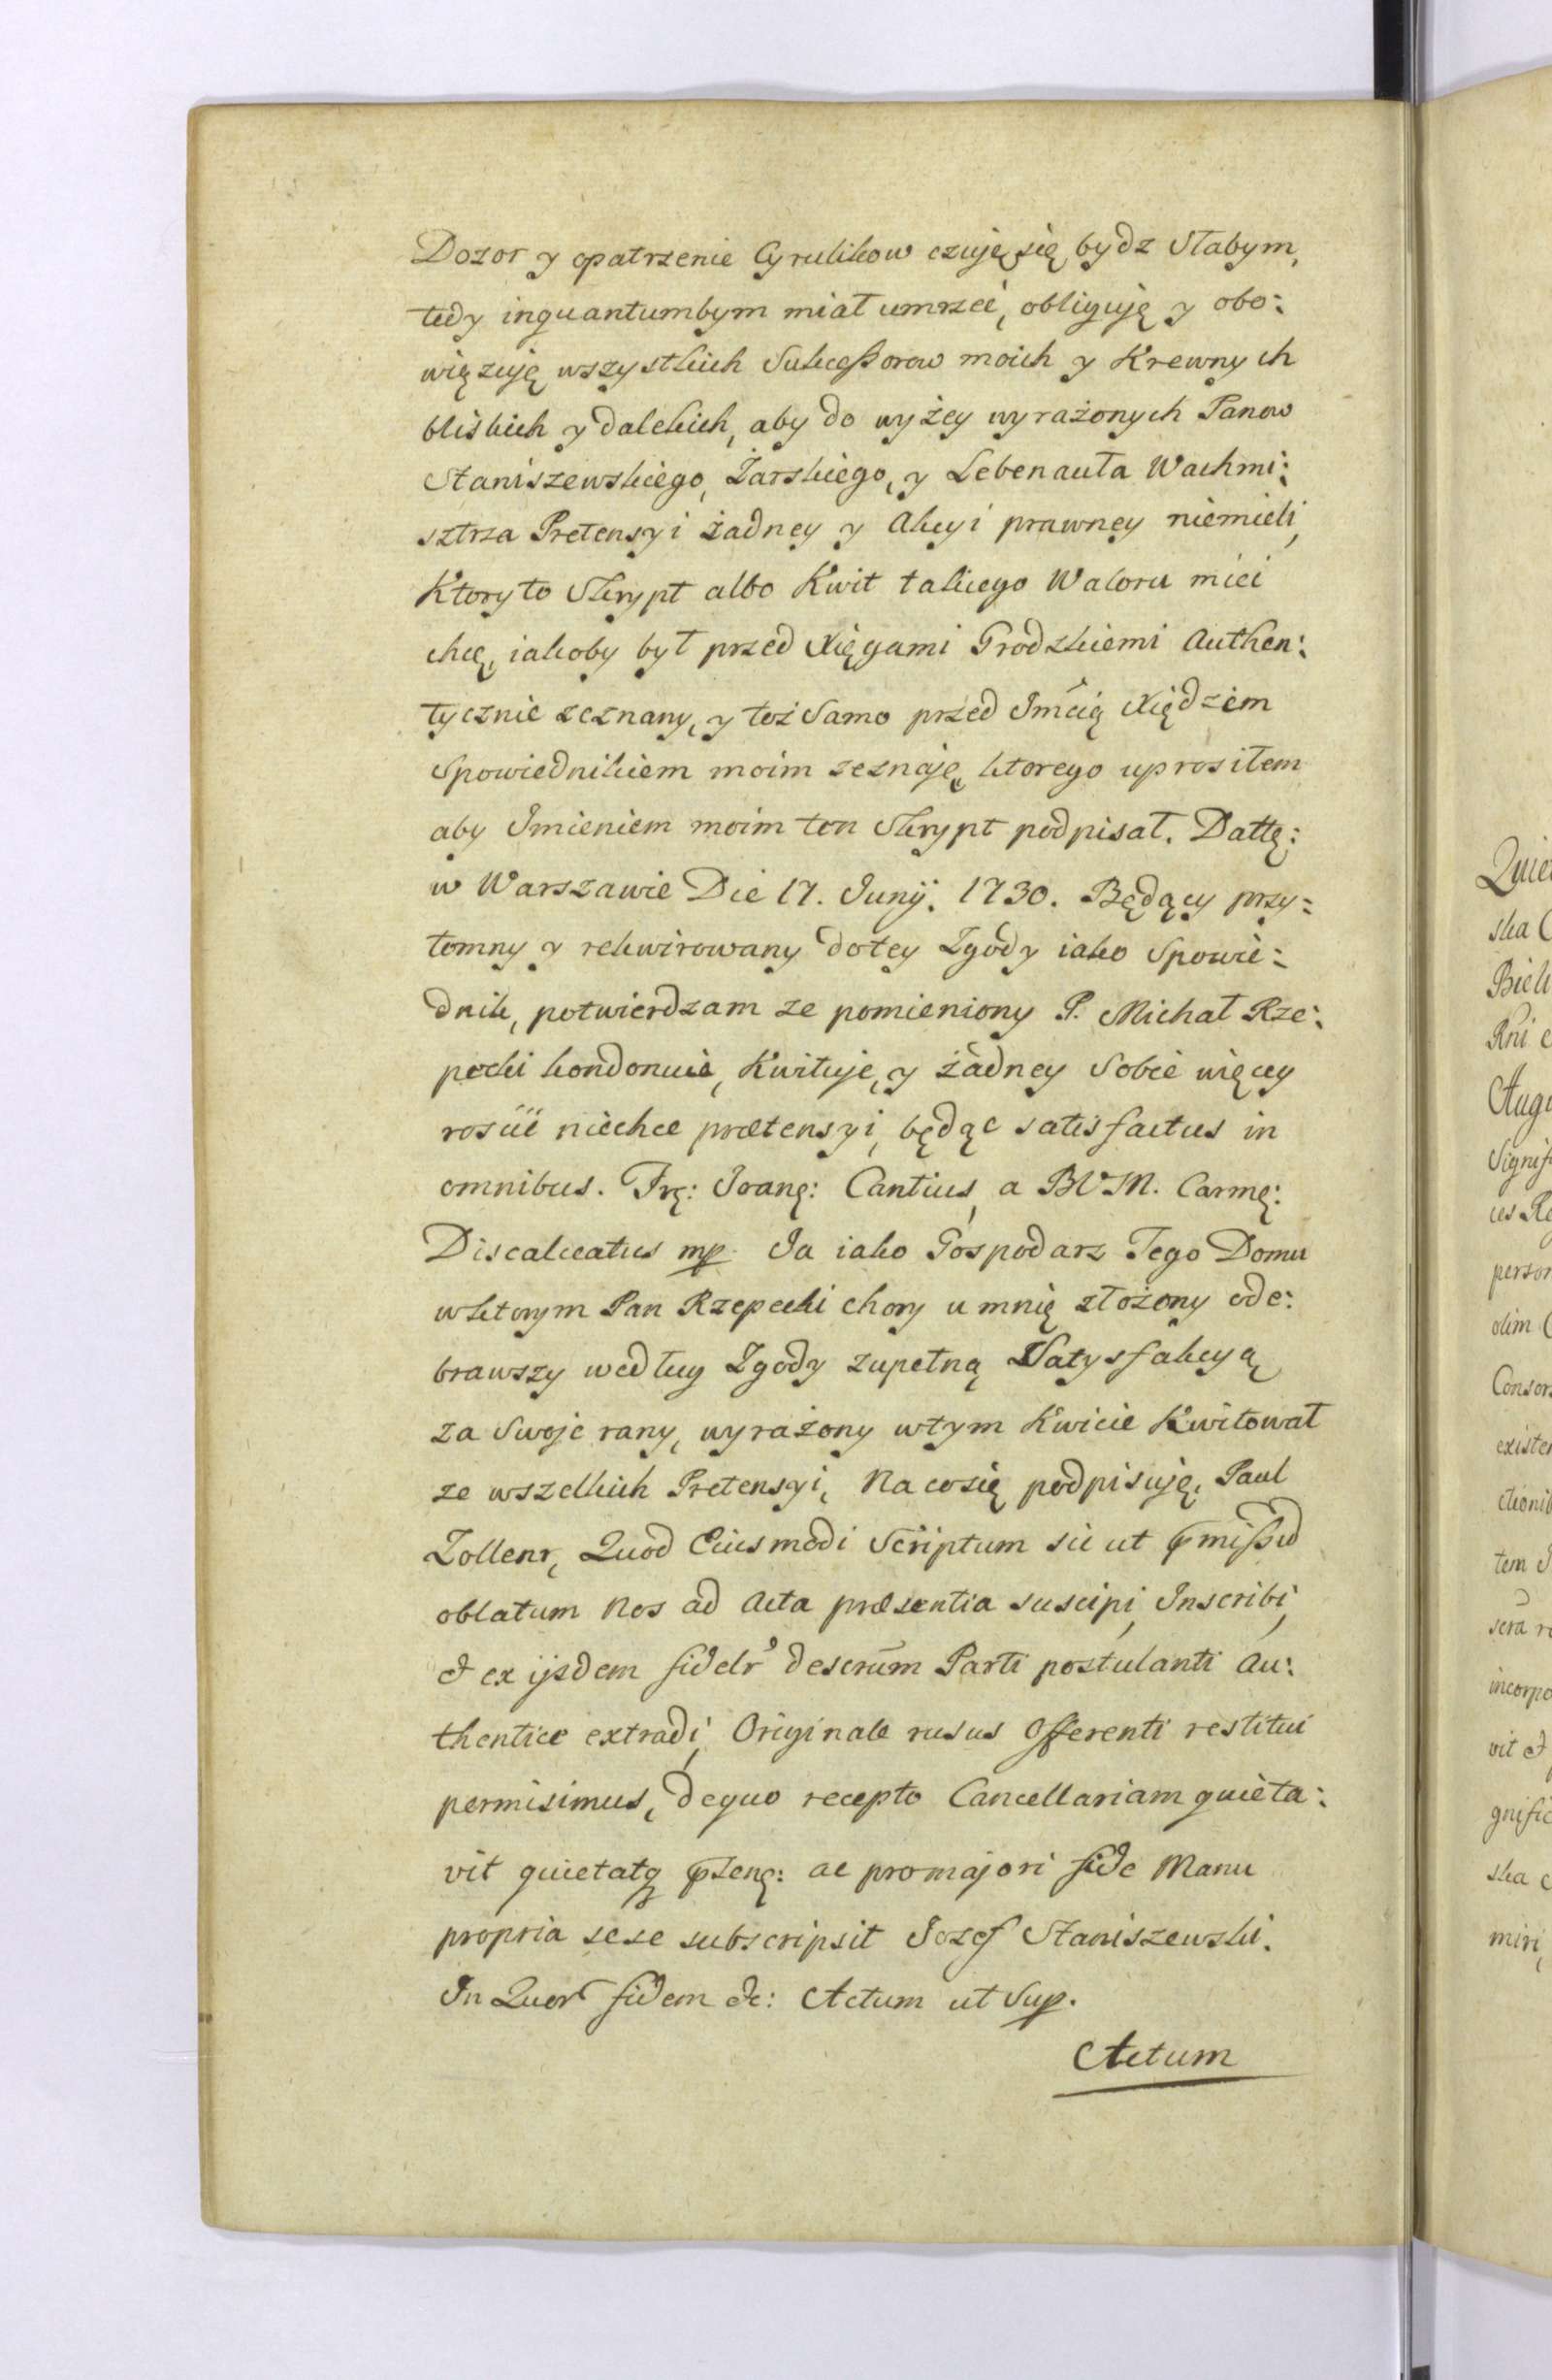 Dozor y opatrzenie Cyrulikow czuję się bydz Słabym,
tedy inquantumbym miał umrzeć, obliguję y obo:
więzuję wszystkich Sukceßorow moich y Krewnych
bliskich y dalekich, aby do wyżey wyrażonych Panow
Staniszewskiego, Żarskiego, y Lebenauta Wachmi:
sztrza Pretensyi żadney y Akcyi prawney niemieli,
Ktoryto Skrypt albo Kwit takiego Waloru mieć
chcę, iakoby był przed Xięgami Grodzkiemi Authen:
tycznie zeznany, y toż Samo przed Jmcią Xiędzem
Spowiednikiem moim zeznaję, ktorego uprosiłem
aby Jmieniem moim ten Skrypt podpisał. Dattę:
w Warszawie Die 17. Junij. 1730. Będący przy:
tomny y rekwirowany dotey Zgody iako Spowie:
dnik, potwierdzam ze pomieniony P. Michał Rze:
pecki kondonuie, Kwituje, y żadney Sobie więcey
rościć niechce prætensyi, będąc satisfactus in
omnibus. Frę: Joanę: Cantius, a BVM. Carmę:
Discalceatus mp. Ja iako Gospodarz Tego Domu
wktorym Pan Rzepecki chory u mnię złożony ode:
brawszy według Zgody zupełną Satysfakcyą
za Swoje rany, wyrażony wtym Kwicie Kwitował
ze wszelkich Pretensyi, Na cosię podpisuję, Paul
Zollenr, Quod Eiusmodi Scriptum sic ut pmißũ
oblatum Nos ad Acta præsentia suscipi, Inscribi,
et ex ijsdem fidelr descrūm Parti postulanti Au:
thentice extradi, Originale rusus Offerenti restitui
permisimus, dequo recepto Cancellariam quieta:
vit quietatq pzenę: ac promajori fide Manu
propria sese subscripsit Jozef Staniszewski.
In Quor fidem etc: Actum ut Sup.
Actum
Quie
ska C
Biel
Rni
Augu
Signif
ces Re
person
olim
Consor
existen
ctionib
tem
sera r
incorpo
vit et
gnific
ska
miri,